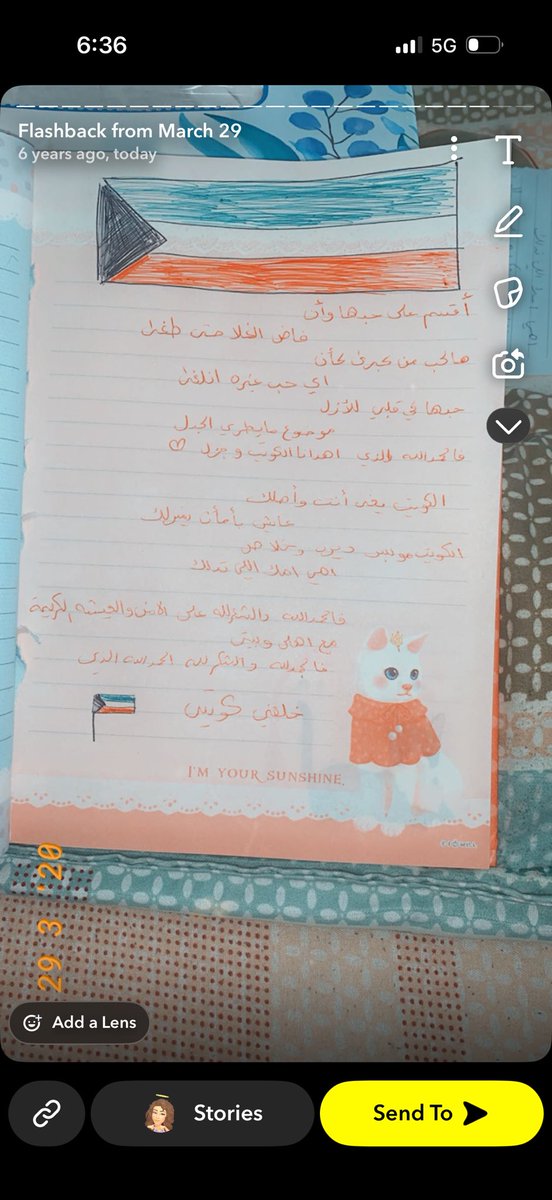 6:36
5G
Flashback from March 29
6 years ago, today
T
أقسم على حبها وأن
فاض الغلا حتى طغى
هالحب من كبرى لأن
اي حب غيره انلغى
حبها في قلبي للأزل
موضوع مايطري الجدل
فالحمدالله الذي اهدانا الكويت وجزل
الكويت يعني أنت وأهلك
عايش بأمان يمرلك
الكويت مو بس ديرة
اهي امك اللي تدلك
فالحمدالله والشكرالله على الأمن والعيشه الكريمة
مع اهلي وبيتي
فالحمدلله والشكر لله الحمدالله الذي
خلقني كويتي
I'M YOUR SUNSHINE.
29 3 '20
Add a Lens
Stories
Send To